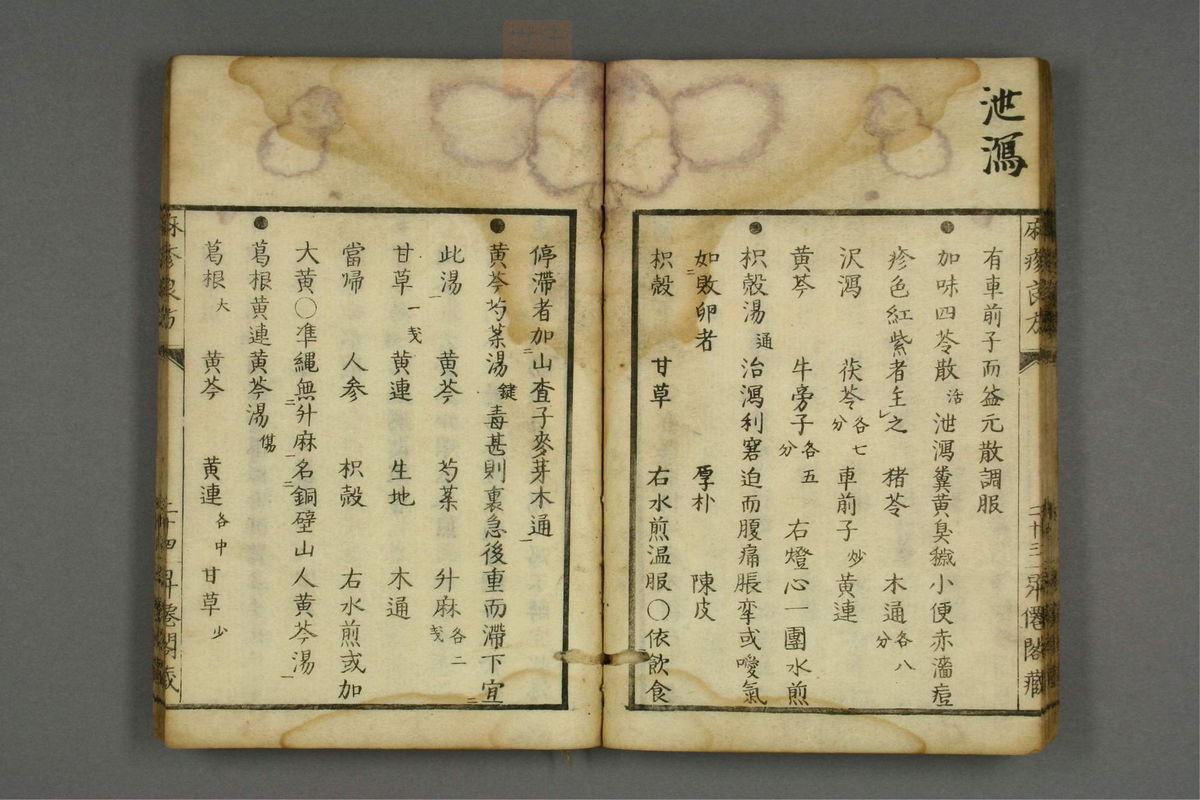 泄瀉
有車前子而益元散調服
加味四苓散 活 泄瀉糞黄臭穢小便赤濇痘
疹色紅紫者主之 猪苓 木通 各八分
沢瀉 茯苓 各七分 車前子 炒 黄連
黄芩 牛旁子 各五分 右燈心一團水煎
枳殻湯 通 治瀉利窘迫而腹痛脹挛或噯氣
如敗卵者 厚朴 陳皮
枳殻 甘草 右水煎温服〇依飲食
二十三
停滯者加二山査子麥芽木通一
黄芩芍薬湯 鍵 毒甚則裏急後重而滯下宜二
此湯一 黄芩 芍薬 升麻 各二戔
甘草 一戔 黄連 生地 木通
當帰 人参 枳殻 右水煎或加
大黄〇準繩無二升麻一名二銅壁山人黄芩湯一
葛根黄連黄芩湯 傷
葛根 大 黄芩 黄連 各中 甘草 少
二十四